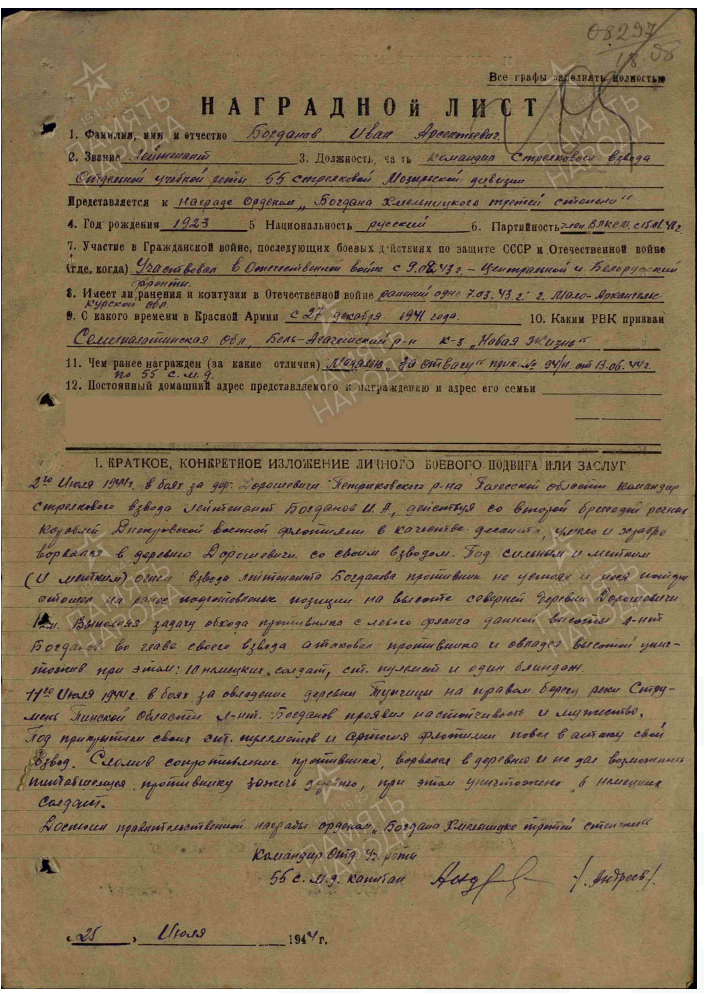 08297
18.08
Все графы заполнять полностью
НАГРАДНОЙ ЛИСТ
1. Фамилия, имя и отчество Богданов Иван Арсентьевич.
2. Звание Лейтенант 3. Должность, часть Командир стрелкового взвода
Отдельной учебной роты 55 стрелковой Мозырской дивизии
Представляется к награде Орденом „Богдана Хмельницкого третей степени"
4. Год рождения 1923 5 Национальность русский 6. Партийность член ВЛКСМ с
7. Участие в Гражданской войне, последующих боевых действиях по защите СССР и Отечественной войне
(где, когда) Участвовал в Отечественной войне с 9.02.43г – Центральной и Белорусский
фронты.
8. Имеет ли ранения и контузии в Отечественной войне ранений одно 7.03.43г. г. Мало-Архангельс
Курской обл.
9. С какого времени в Красной Армии с 27 декабря 1941 года. 10. Каким РВК призван
Семипалатинская обл, Бель-Агачинский р-н к-з „Новая Жизнь"
11. Чем ранее награжден (за какие отличия) Медалью „За отвагу" прик. № 94/н. от 13.06.44г.
по 55 с.м.д.
12. Постоянный домашний адрес представляемого к награждению и адрес его семьи
I. КРАТКОЕ, КОНКРЕТНОЕ ИЗЛОЖЕНИЕ ЛИЧНОГО БОЕВОГО ПОДВИГА ИЛИ ЗАСЛУГ
2го Июля 1944г. в боях за дер. Дорошевичи Петриковского р-на Полесской области командир
стрелкового взвода лейтенант Богданов И.А, действуя со второй бригадой речных
кораблей Днепровской военной флотилии в качестве десанта, умело и храбро
ворвался в деревню Дорошевичи со своим взводом. Под сильным и метким
(и метким) огнем взвода лейтенанта Богданова противник не устоял и
отошел на ранее подготовленые позиции на высоте северней деревни Дорошевичи
Выполняя задачу обхода противника с левого фланга данной высоты л-нт
Богданов во главе своего взвода атаковал противника и овладел высотой унич-
тожив при этом: 10 немецких солдат, ст. пулемет и один блиндаж.
11го Июля 1944г. в боях за овладение деревни Тупчицы на правом берегу реки Стру-
мень Пинской Области л-нт. Богданов проявил настойчивость и мужество.
Под прикрытием своих ст. пулеметов и артогня флотилии повел в атаку свой
взвод. Сломив сопротивление противника, ворвался в деревню и не дал возможность
пытавшемуся противнику зажечь деревню, при этом уничтожено 8 немецких
солдат.
Достоин правительственной награды орденом „Богдана Хмельницко третей степени"
Командир Отд. Уч. роты
55 с.м.д. капитан /Андреев/.
„25" Июля 1944 г.
ПАМЯТЬ
НАРОДА
1941-1945